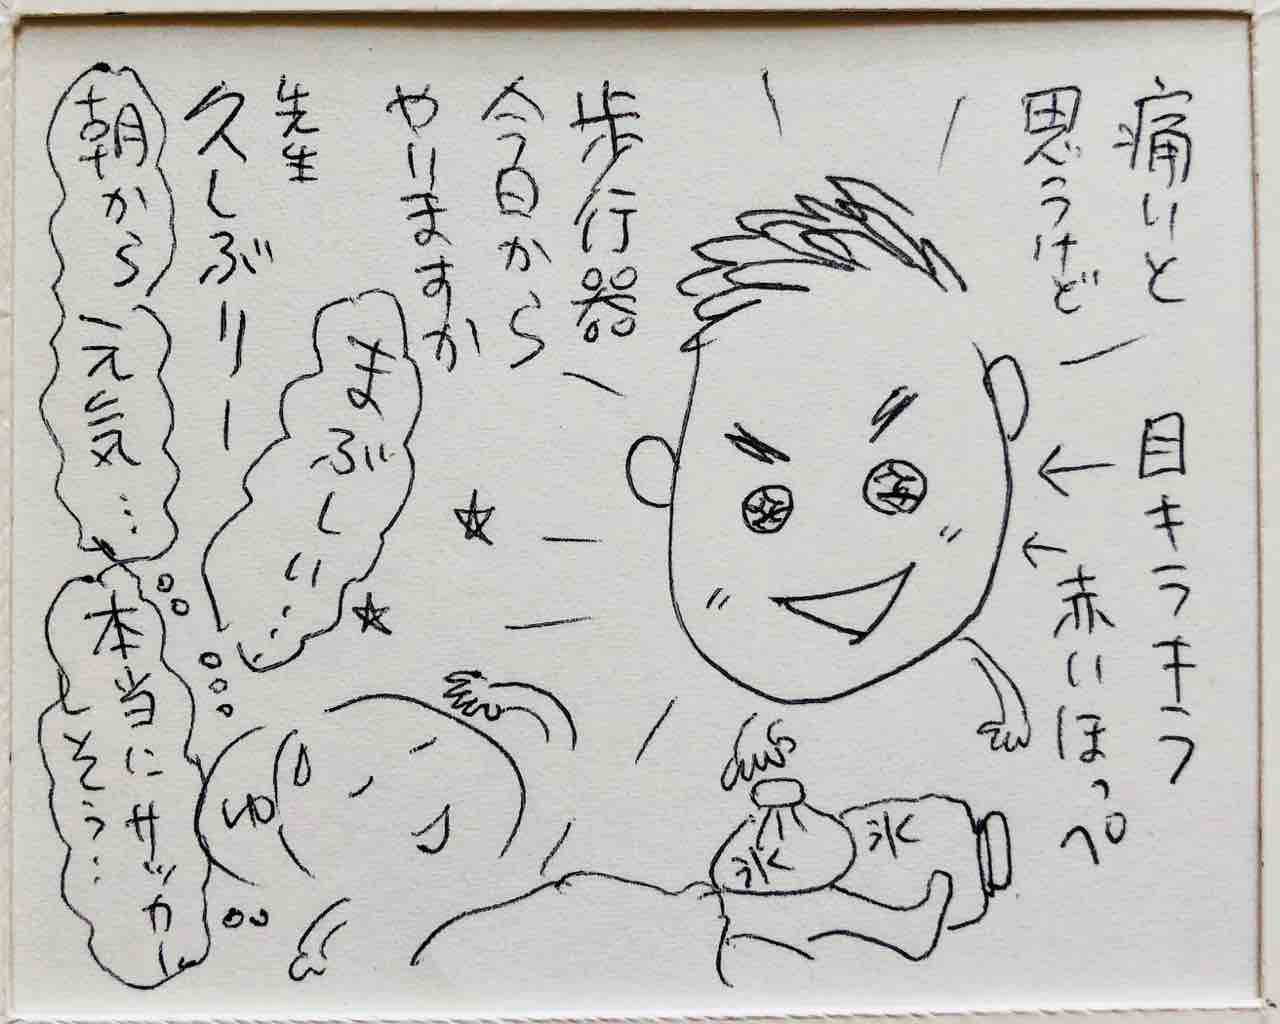 痛いと
思うけど
歩行器
今日から
やりますか
目キラキラ
赤いほっぺ
先生
久しぶりー
まぶしい…
朝から
元気…
本当にサッカー
しそう…
ゆ
氷
氷